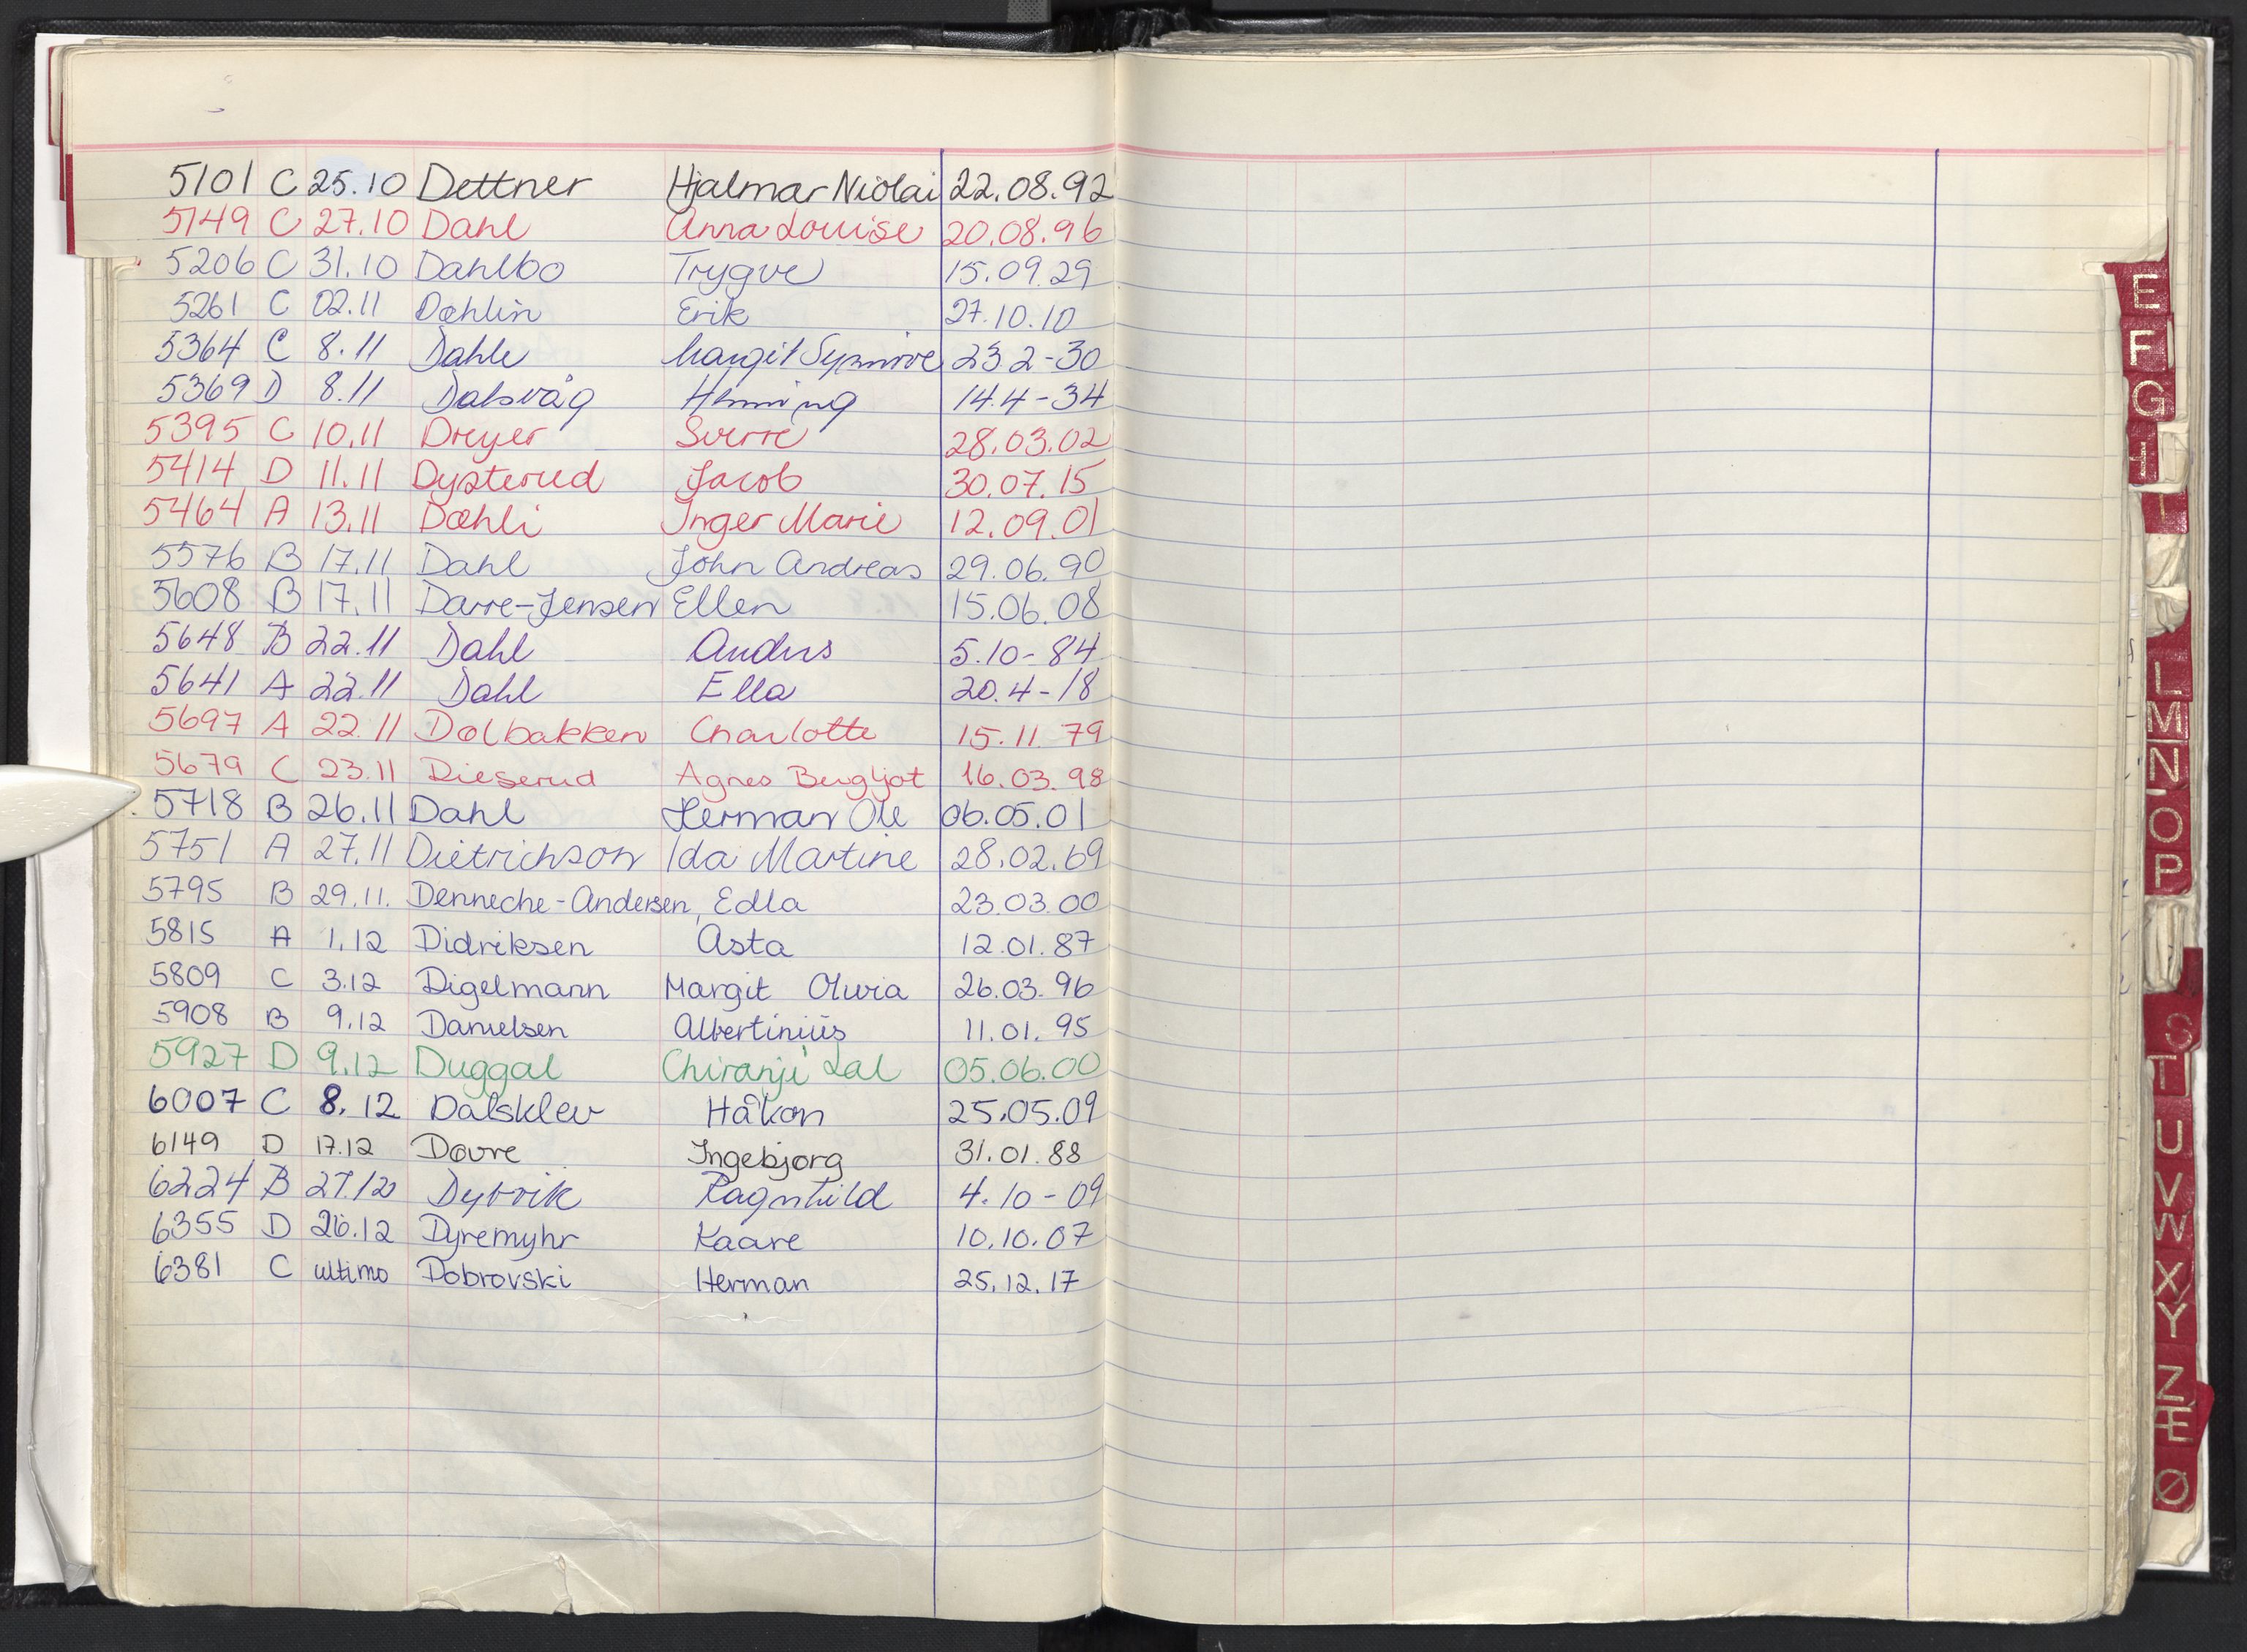 5101 C 25.10 Dettner Hjalmar Niolai 22.08.92
5149 C 27.10 Dahl Anna Louise 20.08.96
5206 C 31.10 Dahlbo Trygve 15.09.29
5261 C 02.11 Dæhlin Erik 27.10.10
5364 C 8.11 Dahle Margit Synnøve 23.2-30
5369 D 8.11 Dalsvåg Henning 14.4-34
5395 C 10.11 Dreyer Sverre 28.03.02
5414 D 11.11 Dysterud Jacob 30.07.15
5464 A 13.11 Dæhli Inger Marie 12.09.01
5576 B 17.11 Dahl John Andreas 29.06.90
5608 B 17.11 Darre-Jensen Ellen 15.06.08
5648 B 22.11 Dahl Anders 5.10-84
5641 A 22.11 Dahl Ella 20.4-18
5697 A 22.11 Dølbakken Charlotte 15.11.79
5679 C 23.11 Dieserud Agnes Bergljot 16.03.98
5718 B 26.11 Dahl Herman Ole 06.05.01
5751 A 27.11 Dietrichson Ida Martine 28.02.69
5795 B 29.11. Denneche-Andersen, Edla 23.03.00
5815 A 1.12 Didriksen Asta 12.01.87
5809 C 3.12 Digelmann Margit Olivia 26.03.96
5908 B 9.12 Danielsen Albertinius 11.01.95
5927 D 9.12 Duggal Chiranji Lal 05.06.00
6007 C 8.12 Dalsklev Håkon 25.05.09
6149 D 17.12 Dovre Ingebjørg 31.01.88
6224 B 27.12 Dybvik Ragnhild 4.10-09
6355 D 26.12 Dyremyhr Kaare 10.10.07
6381 C ultimo Dobrovski Herman 25.12.17
E
F
G
I
L
M
N
O
P
S
T
U
V
W
X
Y
Z
Æ
Ø